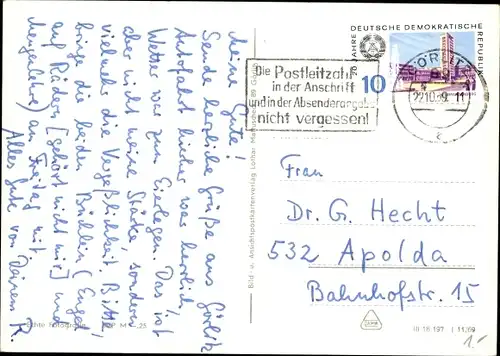 Meine Gute!
Sende herzliche Grüße aus Görlitz
Autofahrt hierher war herrlich!
Wetter was zum Eierlegen. Das ist
aber nicht meine Stärke sondern
vielmehr die Vergeßlichkeit. Bitte,
bringe die beiden Bücher (Engel
auf Rädern [gehört nicht mir] und
) am Freitag mit.
Alles Gute von Deinem R.
20 JAHRE
DEUTSCHE DEMOKRATISCHE
REPUBLIK
10
Die Postleitzahl
in der Anschrift
und in der Absenderangabe
nicht vergessen!
GÖRLITZ
22.10.69. 11
Bild- u. Ansichtspostkartenverlag Lothar
Frau
Dr. G. Hecht
532 Apolda
Bahnhofstr. 15
Echte Fotografie
III 18 197 J 11/69
1.-